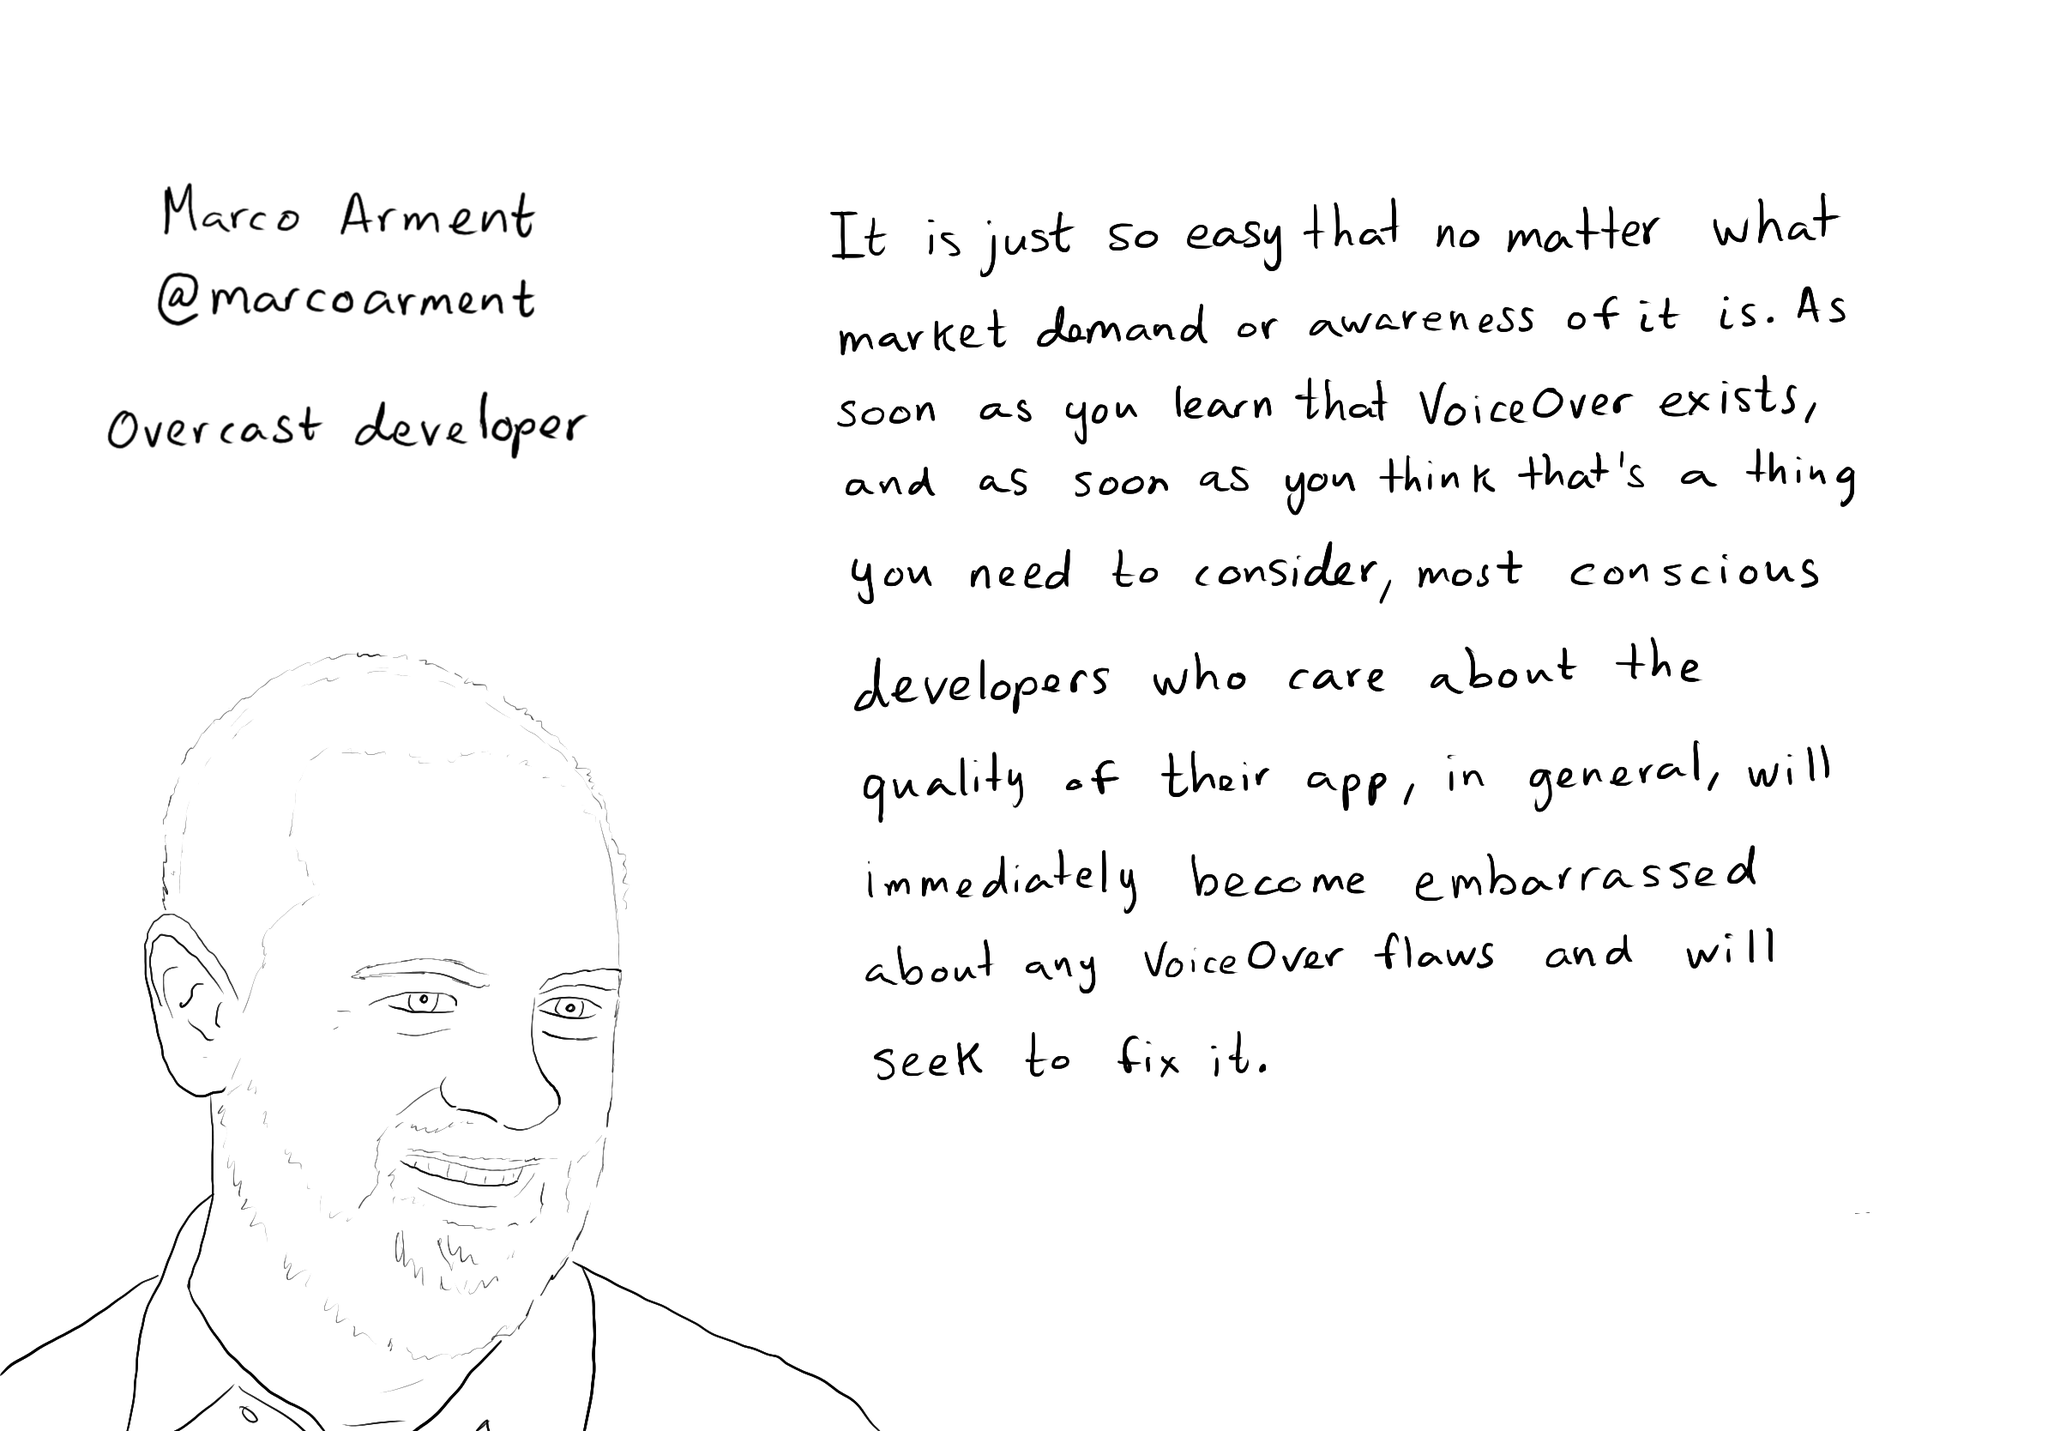 Marco Arment
@marcoarment
Overcast developer
It is just so easy that no matter what
market demand or awareness of it is. As
soon as you learn that VoiceOver exists,
and as soon as you think that's a thing
you need to consider, most conscious
developers who care about the
quality of their app, in general, will
immediately become embarrassed
about any VoiceOver flaws and will
seek to fix it.